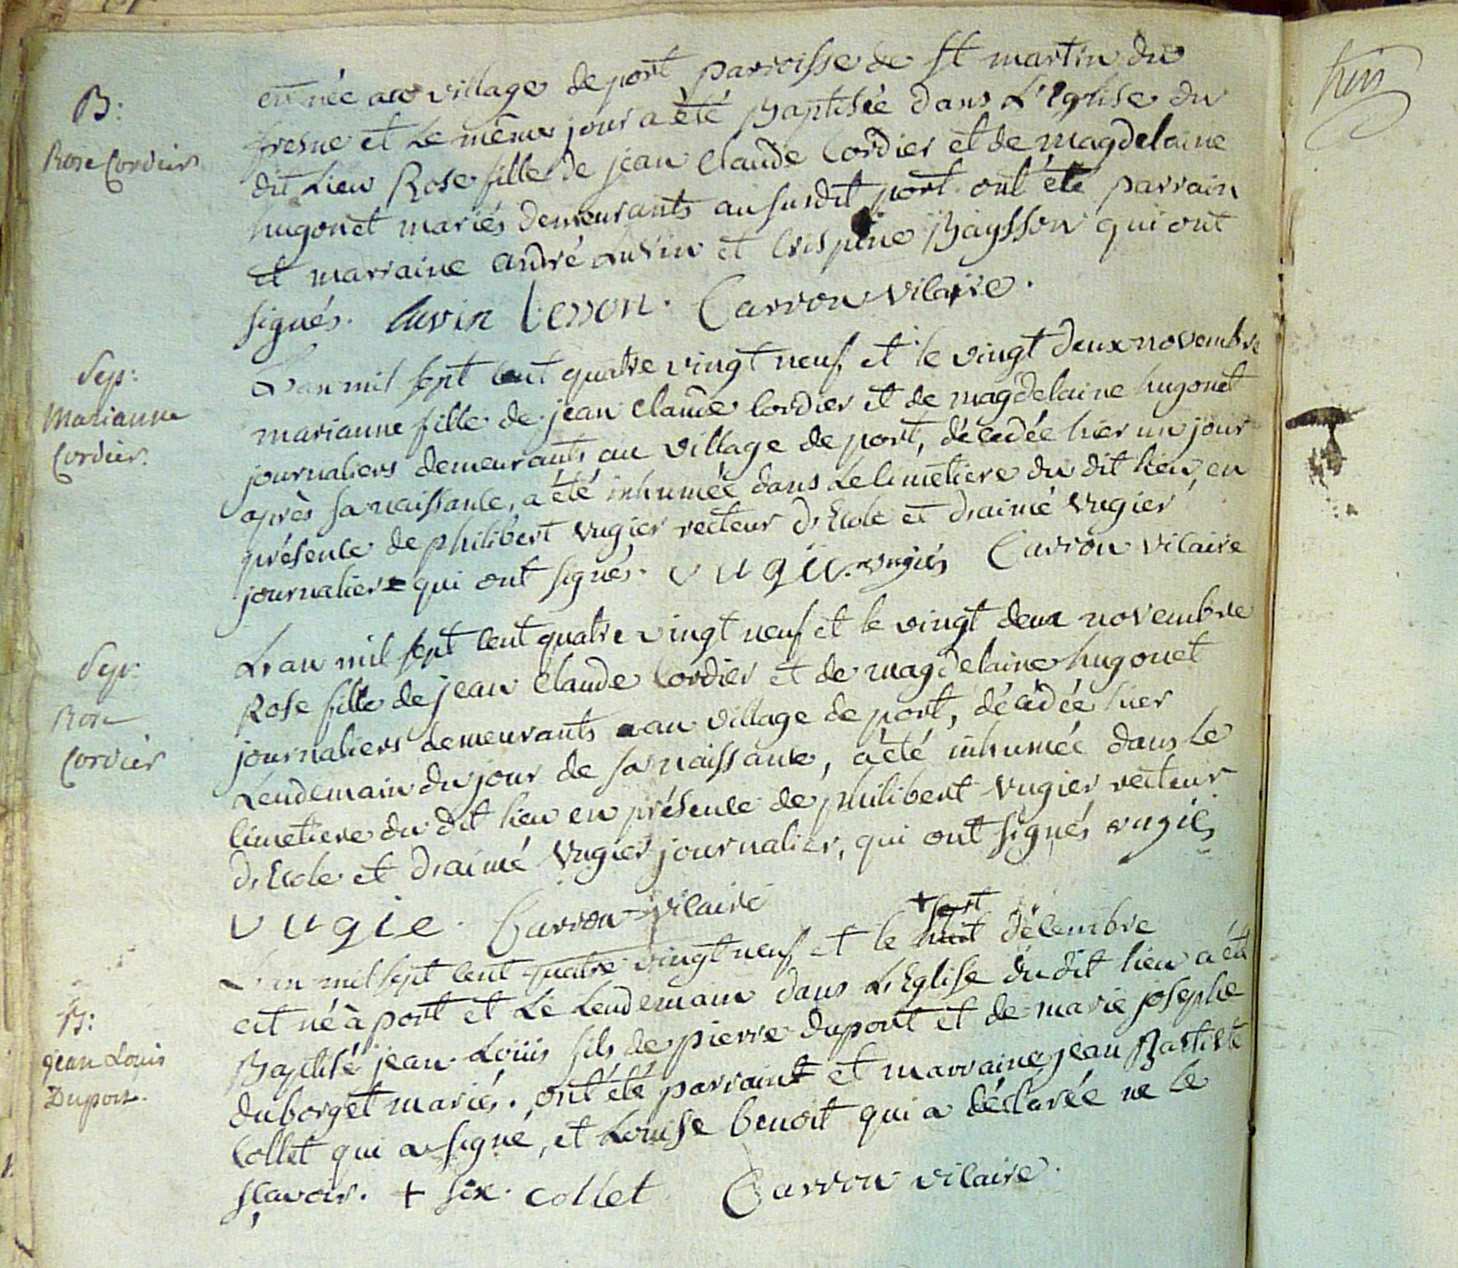 B:
Rose Cordier
est née au village de port parroisse de St martin du
fresne et le même jour a été Baptisée dans L'Eglise du
dit Lieu Rose fille de jean Claude Cordier et de magdelaine
hugonet mariés demeurants au susdit port. ont été parrain
et marraine andré Luvin et Crispine Baysson qui ont
signés. Luvin besson. Carron vicaire.
Sep:
Marianne
Cordier.
L'an mil sept cent quatre vingt neuf et le vingt deux novembre
marianne fille de jean claude Cordier et de magdelaine hugonet
journaliers demeurants au village de port, décédée hier un jour
après sa naissance, a été inhumée dans Le Cimetiere du dit lieu, en
présence de philibert Vugier recteur d'Ecole et d'aimé Vugier
journalier qui ont signés. vugie. vugies Carron vicaire
Sep:
Rose
Cordier
L'an mil sept cent quatre vingt neuf et le vingt deux novembre
Rose fille de jean Claude Cordier et de magdelaine hugonet
journaliers demeurants au village de port, décédée hier
Lendemain du jour de sa naissance, a été inhumée dans Le
Cimetiere du dit lieu en présence de philibert Vugier recteur
d'Ecole et d'aimé Vugier journalier, qui ont signés vugies
vugie. Carron vicaire
B:
jean Louis
Dupont.
L'an mil sept cent quatre vingt neuf et le huit + sept décembre
est né à port et Le Lendemain dans L'Eglise du dit lieu a été
Baptisé jean Loüis fils de pierre dupont et de marie josephe
duborget mariés. ont été parrain et marraine jean Batiste
Collet qui a signé, et Louise benoit qui a déclarée ne le
sçavoir. + six. Collet Carron vicaire.